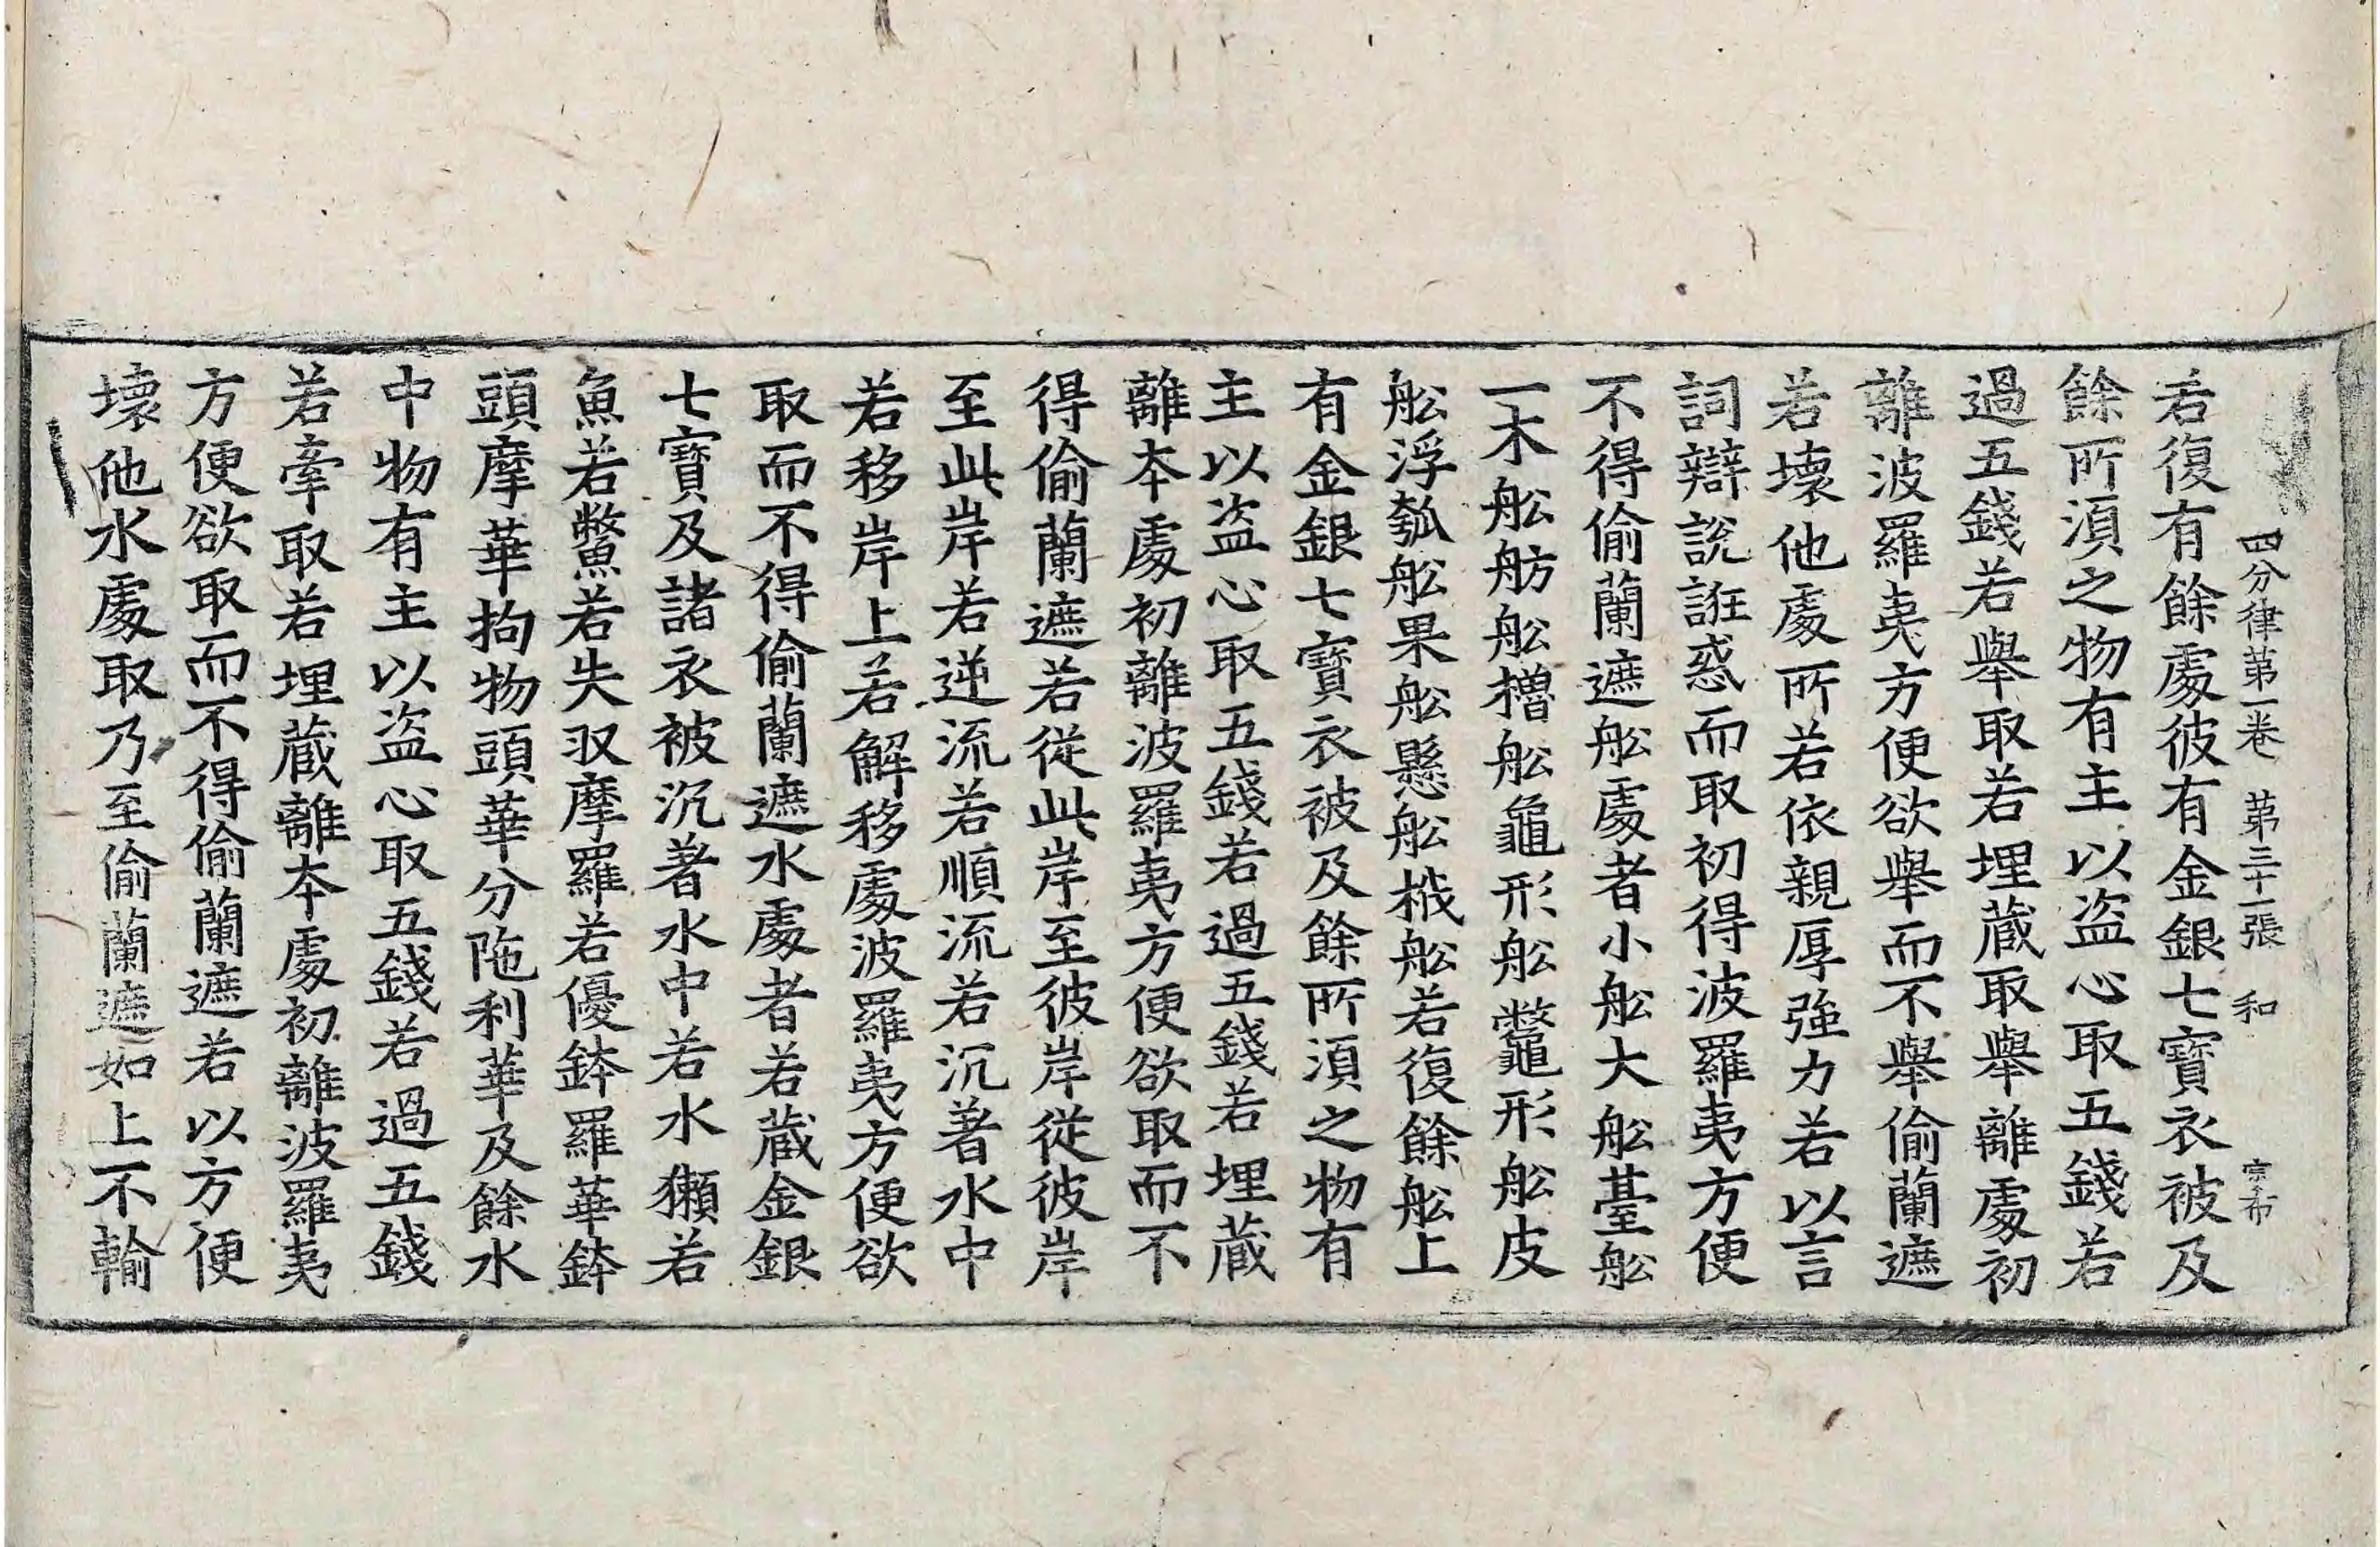 四分律第一卷 第三十一張 和 宗布
若復有餘處彼有金銀七寶衣被及
餘所湏之物有主以盗心取五錢若
過五錢若舉取若埋蔵取舉離處初
離波羅夷方便欲舉而不舉偷蘭遮
若壞他處所若依親厚強力若以言
詞辯說誑惑而取初得波羅夷方便
不得偷蘭遮舩處者小舩大舩䑓舩
一木舩舫舩櫓舩龜形舩鼈形舩皮
舩浮瓠舩果舩懸舩栰舩若復餘舩上
有金銀七寶衣被及餘所湏之物有
主以盗心取五錢若過五錢若埋蔵
離夲處初離波羅夷方便欲取而不
得偷蘭遮若從此岸至彼岸從彼岸
至此岸若逆流若順流若沉著水中
若移岸上若解移處波羅夷方便欲
取而不得偷蘭遮水處者若蔵金銀
七寶及諸衣被沉著水中若水獺若
魚若鱉若失収摩羅若優鉢羅華鉢
頭摩華拘物頭華分陁利華及餘水
中物有主以盗心取五錢若過五錢
若牽取若埋蔵離夲處初離波羅夷
方便欲取而不得偷蘭遮若以方便
壞他水處取乃至偷蘭遮如上不輸